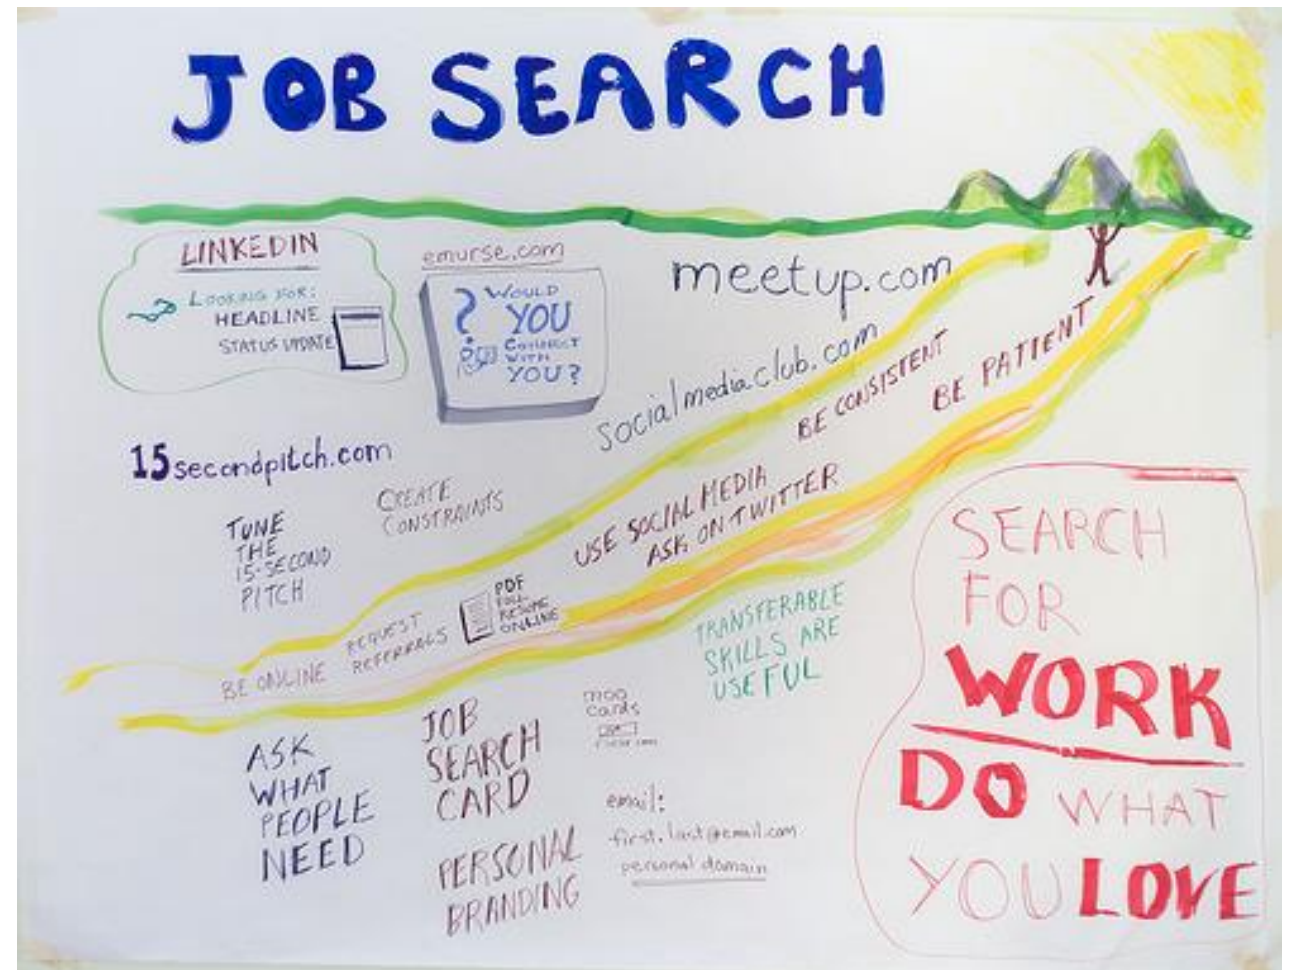 JOB SEARCH
LINKEDIN
LOOKING FOR:
HEADLINE
STATUS UPDATE
emurse.com
? WOULD
YOU
CONNECT
WITH
YOU?
meetup.com
socialmediaclub.com
BE CONSISTENT
BE PATIENT
15secondpitch.com
CREATE
CONSTRAINTS
TUNE
THE
15-SECOND
PITCH
USE SOCIAL MEDIA
ASK ON TWITTER
PDF
FULL
RESUME
ONLINE
REQUEST
REFERRALS
BE ONLINE
TRANSFERABLE
SKILLS ARE
USEFUL
ASK
WHAT
PEOPLE
NEED
JOB
SEARCH
CARD
PERSONAL
BRANDING
moo
cards
email:
first.last@email.com
personal domain
SEARCH
FOR
WORK
DO WHAT
YOU LOVE